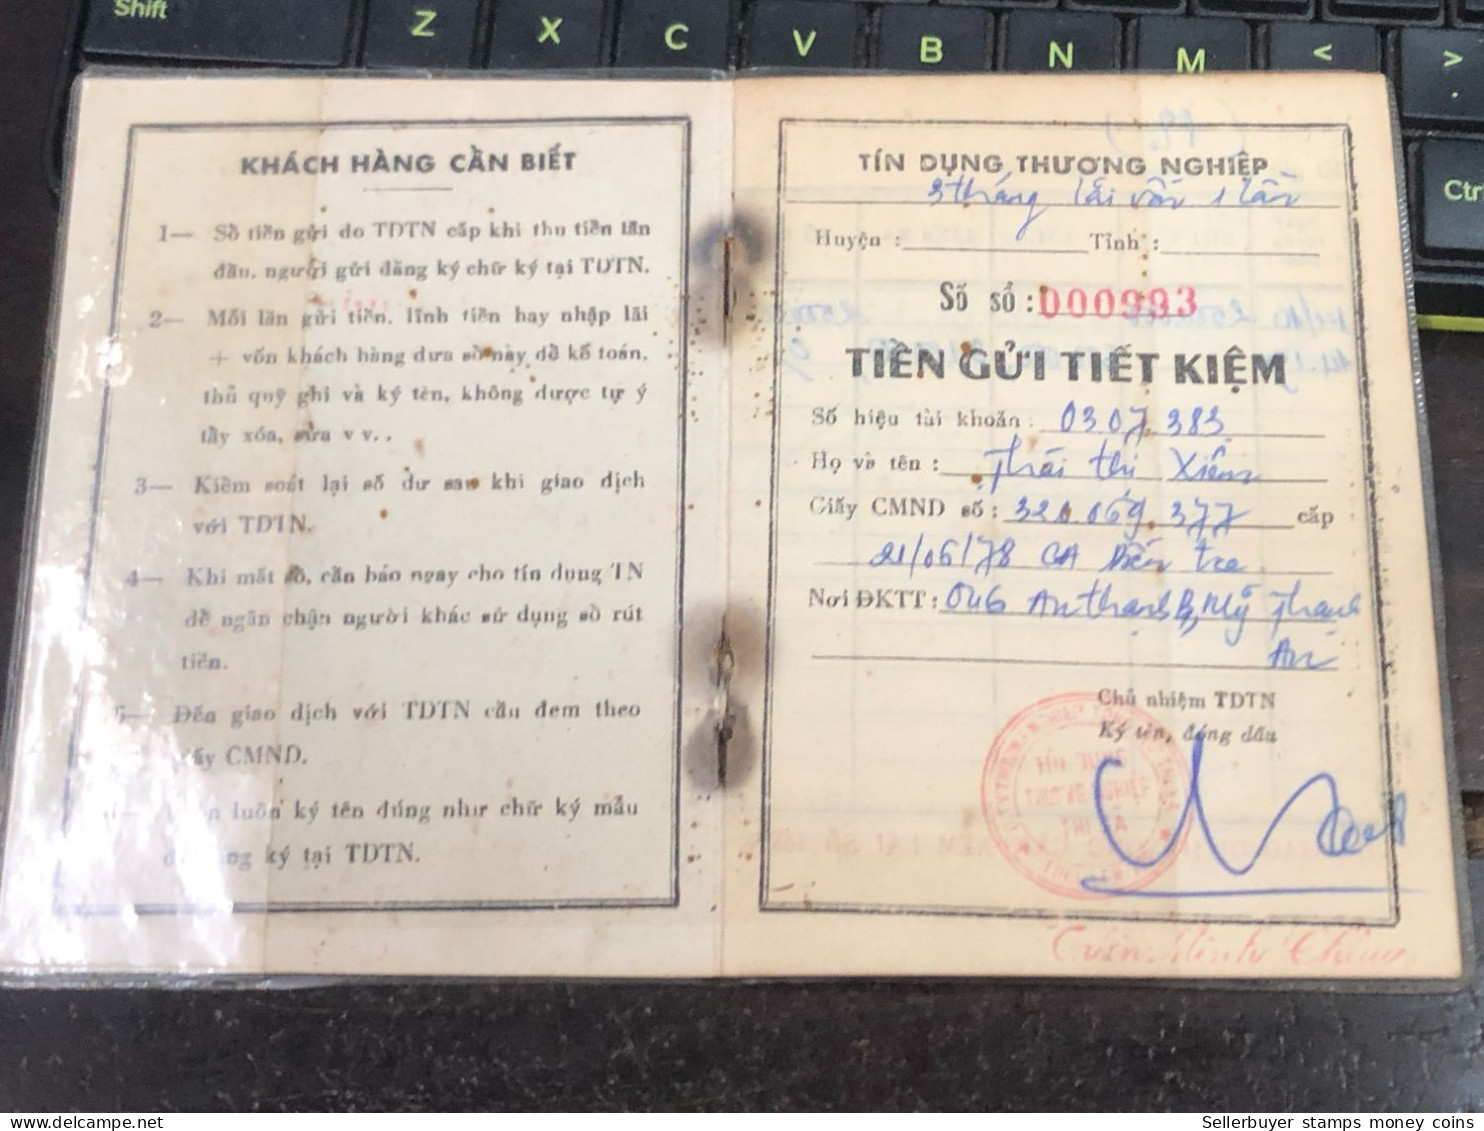 Shift Z X C V B N M < >
.
Ctr
KHÁCH HÀNG CẦN BIẾT
1— Sổ tiền gửi do TDTN cấp khi thu tiền lần
đầu, người gửi đăng ký chữ ký tại TDTN.
2— Mỗi lần gửi tiền, lĩnh tiền hay nhập lãi
+ vốn khách hàng đưa sổ này để kế toán,
thủ quỹ ghi và ký tên, không được tự ý
tẩy xóa, sửa v v..
3— Kiểm soát lại số dư sau khi giao dịch
với TDTN.
4— Khi mất sổ, cần báo ngay cho tín dụng TN
để ngăn chận người khác sử dụng sổ rút
tiền.
5— Đến giao dịch với TDTN cần đem theo
giấy CMND.
luôn ký tên đúng như chữ ký mẫu
ký tại TDTN.
TÍN DỤNG THƯƠNG NGHIỆP
3 tháng lãi vốn 1 lần
Huyện : Tỉnh :
Số sổ : 000993
TIỀN GỬI TIẾT KIỆM
Số hiệu tài khoản : 0307.383
Họ và tên : Thái Thị Xiêm
Giấy CMND số : 320.069.377 cấp
21/06/78 CA Bến Tre
Nơi ĐKTT : 046 An Thạnh B, Mỹ Thạnh
An
Chủ nhiệm TDTN
Ký tên, đóng dấu
THỊ XÃ
Sellerbuyer stamps money coins